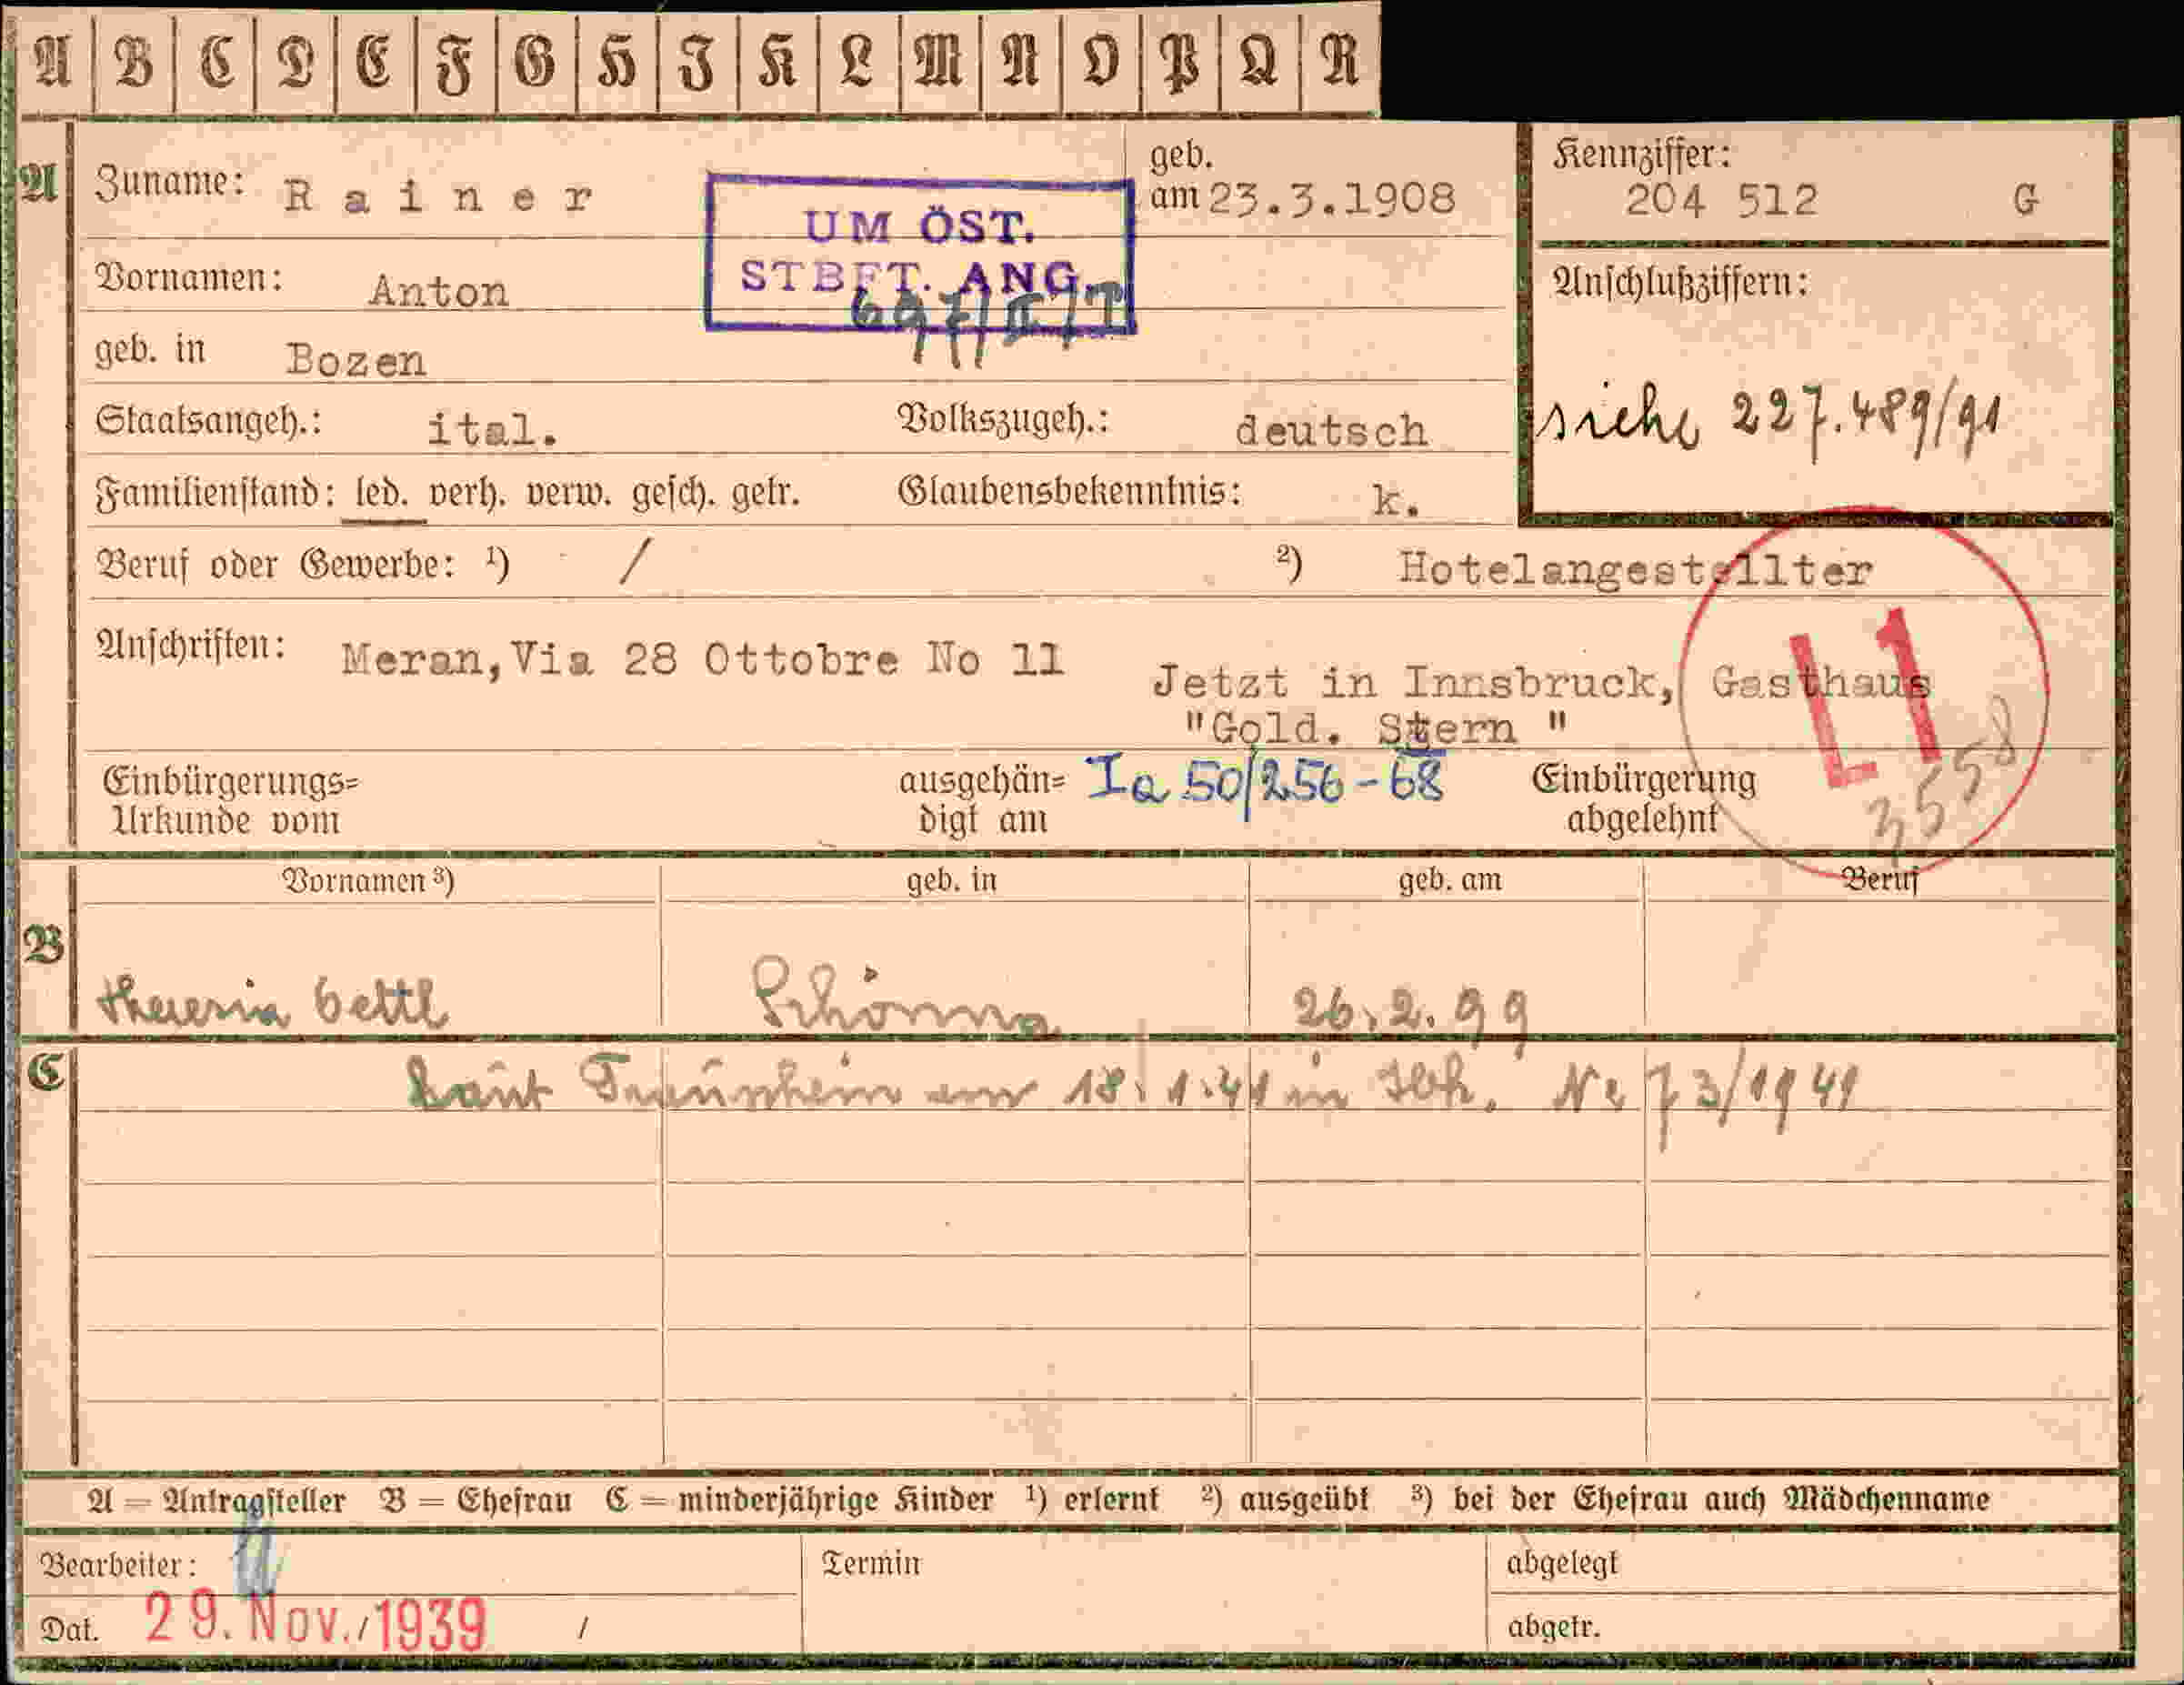 A B C D E F G H I K L M N O P Q R
A
Zuname: Rainer
geb. am 23.3.1908
Kennziffer: 204 512 G
UM ÖST.
STBFT. ANG.
697/II/I
Vornamen: Anton
Anschlußziffern:
geb. in Bozen
siehe 227.489/91
Staatsangeh.: ital. Volkszugeh.: deutsch
Familienstand: led. verh. verw. gesch. getr. Glaubensbekenntnis: k.
Beruf oder Gewerbe: 1) / 2) Hotelangestellter
Anschriften: Meran, Via 28 Ottobre No 11
Jetzt in Innsbruck, Gasthaus
"Gold. Stern "
L1
3558
Einbürgerungs=
Urkunde vom
ausgehän=
digt am
Ia 50/256-68
Einbürgerung
abgelehnt
Vornamen 3) geb. in geb. am Beruf
B
Theresia Oettl Schönna 26.2.99
C
laut Trauschein am 18.1.41 in Ibk. Nr 73/1941
A = Antragsteller B = Ehefrau C = minderjährige Kinder 1) erlernt 2) ausgeübt 3) bei der Ehefrau auch Mädchenname
Bearbeiter:
Termin
abgelegt
Dat. 29. Nov. 1939 /
abgetr.